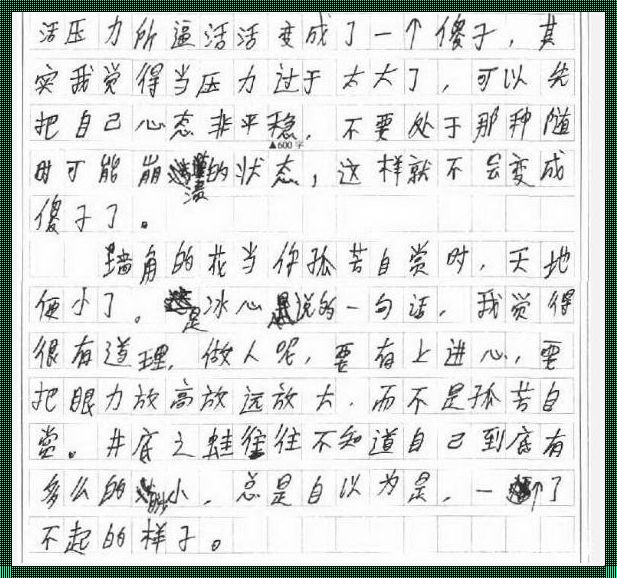 活压力所逼活活变成了一个傻子，其
实我觉得当压力过于太大了，可以先
把自己心态非平稳，不要处于那种随
▲600字
时可能崩溃的状态，这样就不会变成
傻子了。
墙角的花当你孤苦自赏时，天地
便小了。是冰心说的一句话，我觉得
很有道理，做人呢，要有上进心，要
把眼力放高放远放大，而不是孤苦自
赏。井底之蛙往往不知道自己到底有
多么的渺小，总是自以为是，一个了
不起的样子。